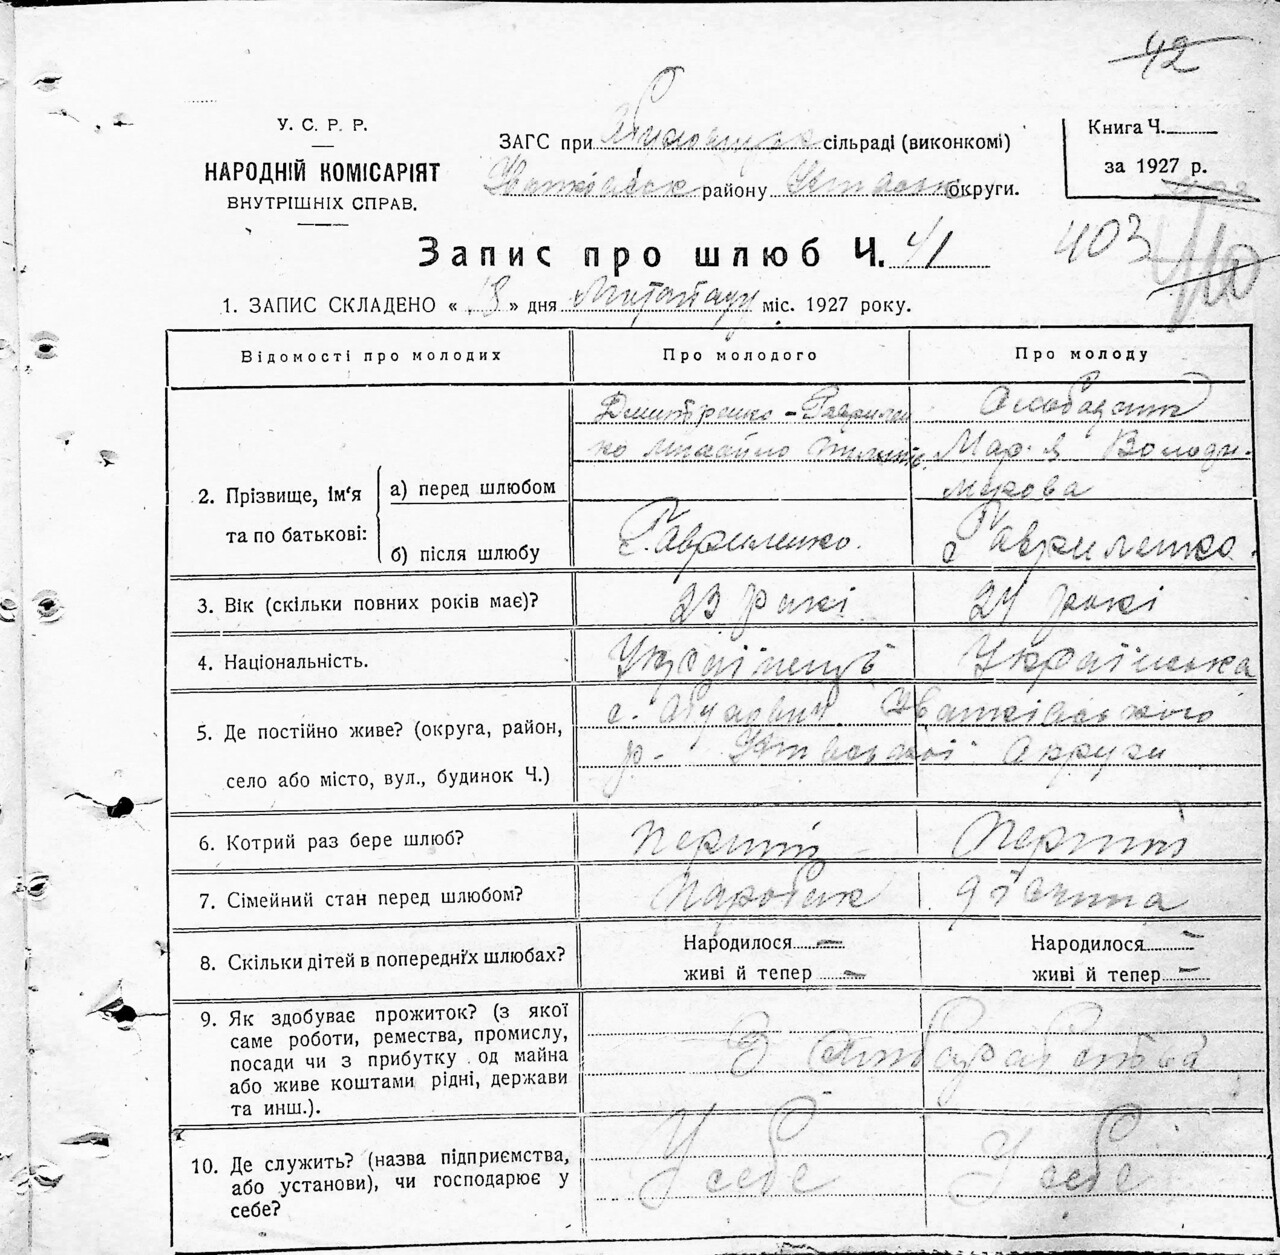 42
У. С. Р. Р.
НАРОДНІЙ КОМІСАРІЯТ
ВНУТРІШНІХ СПРАВ.
ЗАГС при сільраді (виконкомі)
району округи.
Книга Ч.
за 1927 р.
Запис про шлюб Ч. 41
403
410
1. ЗАПИС СКЛАДЕНО « 18 » дня міс. 1927 року.
Відомості про молодих
Про молодого
Про молоду
2. Прізвище, ім'я
та по батькові:
а) перед шлюбом
Дмитренко - Гаврилен
ко Михайло
Мар.я Володи-
мирова
б) після шлюбу
Гавриленко.
Гавриленко.
3. Вік (скільки повних років має)?
23 рокі
24 рокі
4. Національність.
Українець
Українська
5. Де постійно живе? (округа, район,
село або місто, вул., будинок Ч.)
с.
р- Округи
6. Котрий раз бере шлюб?
Перший
Перший
7. Сімейний стан перед шлюбом?
Паробок
дівчина
8. Скільки дітей в попередніх шлюбах?
Народилося —
живі й тепер —
Народилося —
живі й тепер —
9. Як здобуває прожиток? (з якої
саме роботи, ремества, промислу,
посади чи з прибутку од майна
або живе коштами рідні, держави
та инш.).
З хліборобства
10. Де служить? (назва підприємства,
або установи), чи господарює у
себе?
У себе
У себе